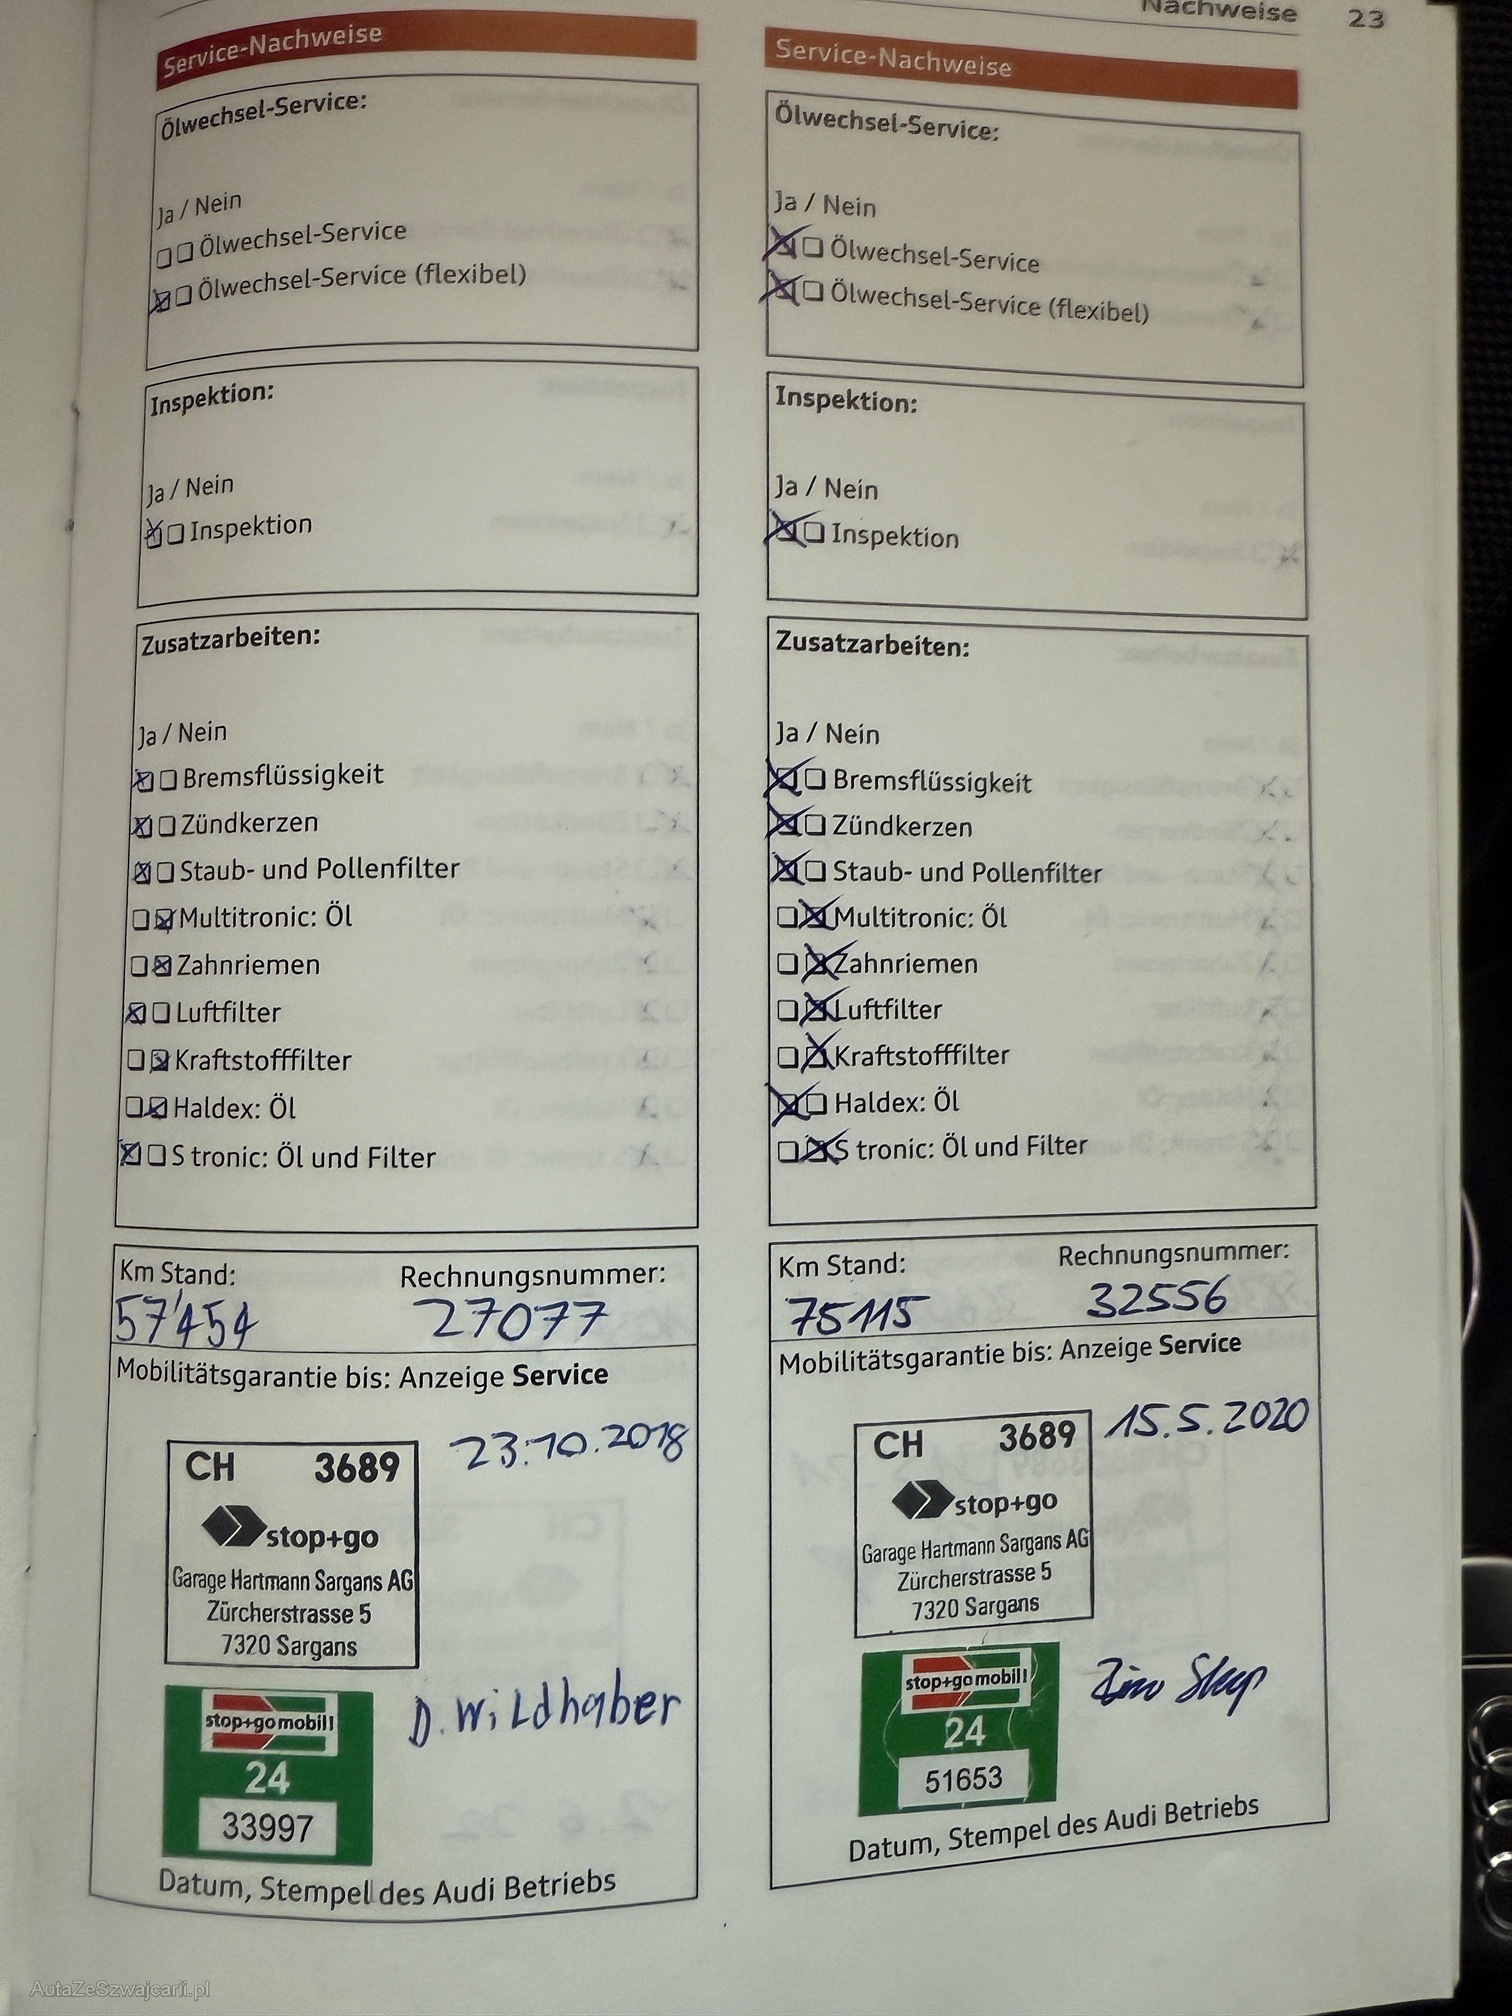 Nachweise 23
Service-Nachweise
Ölwechsel-Service:
Ja / Nein
Ölwechsel-Service
Ölwechsel-Service (flexibel)
Inspektion:
Ja / Nein
Inspektion
Zusatzarbeiten:
Ja / Nein
Bremsflüssigkeit
Zündkerzen
Staub- und Pollenfilter
Multitronic: Öl
Zahnriemen
Luftfilter
Kraftstofffilter
Haldex: Öl
S tronic: Öl und Filter
Km Stand: Rechnungsnummer:
57'454 27077
Mobilitätsgarantie bis: Anzeige Service
23.10.2018
CH 3689
stop+go
Garage Hartmann Sargans AG
Zürcherstrasse 5
7320 Sargans
D. Wildhaber
stop+go mobil!
24
33997
Datum, Stempel des Audi Betriebs
Service-Nachweise
Ölwechsel-Service:
Ja / Nein
Ölwechsel-Service
Ölwechsel-Service (flexibel)
Inspektion:
Ja / Nein
Inspektion
Zusatzarbeiten:
Ja / Nein
Bremsflüssigkeit
Zündkerzen
Staub- und Pollenfilter
Multitronic: Öl
Zahnriemen
Luftfilter
Kraftstofffilter
Haldex: Öl
S tronic: Öl und Filter
Km Stand: Rechnungsnummer:
75115 32556
Mobilitätsgarantie bis: Anzeige Service
15.5.2020
CH 3689
stop+go
Garage Hartmann Sargans AG
Zürcherstrasse 5
7320 Sargans
stop+go mobil!
24
51653
Datum, Stempel des Audi Betriebs
AutaZeSzwajcarii.pl